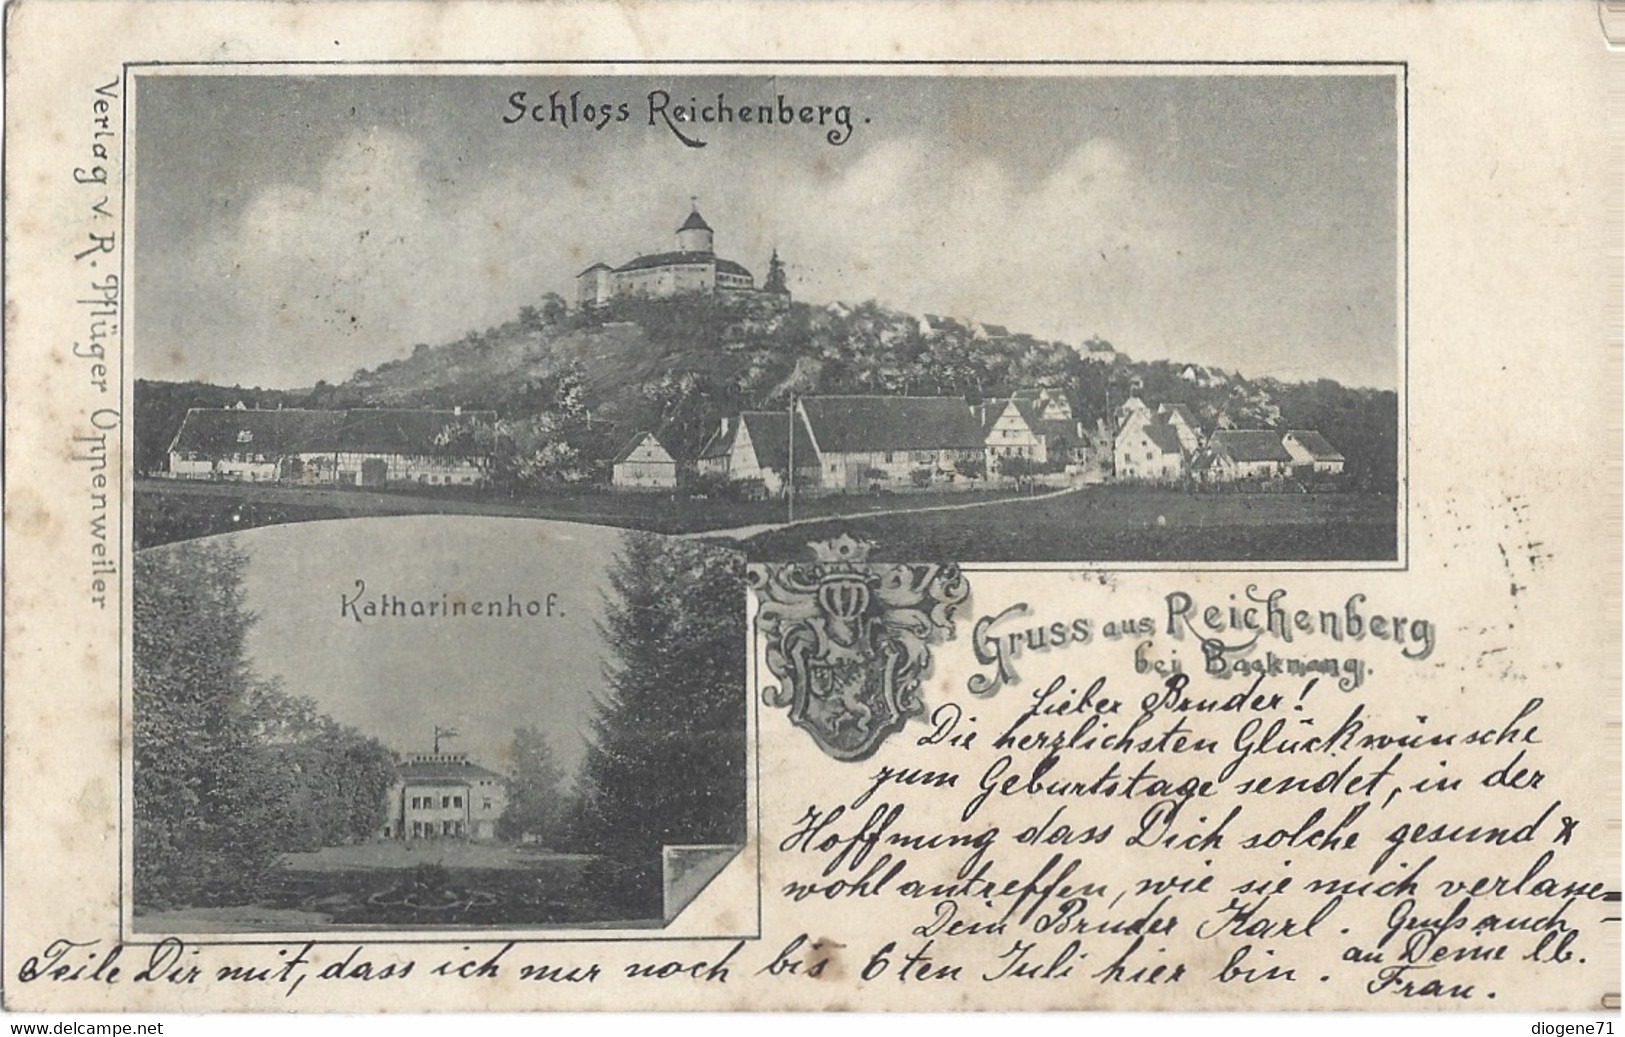 Schloss Reichenberg.
Verlag v. R. Pflüger Oppenweiler
Katharinenhof.
Gruss aus Reichenberg
bei Backnang.
Lieber Bruder!
Die herzlichsten Glückwünsche
zum Geburtstage sendet, in der
Hoffnung dass Dich solche gesund &
wohl antreffen, wie sie mich verlassen
Dein Bruder Karl. Gruß auch
an Deine lb.
Frau.
Teile Dir mit, dass ich nur noch bis 6ten Juli hier bin.
diogene71